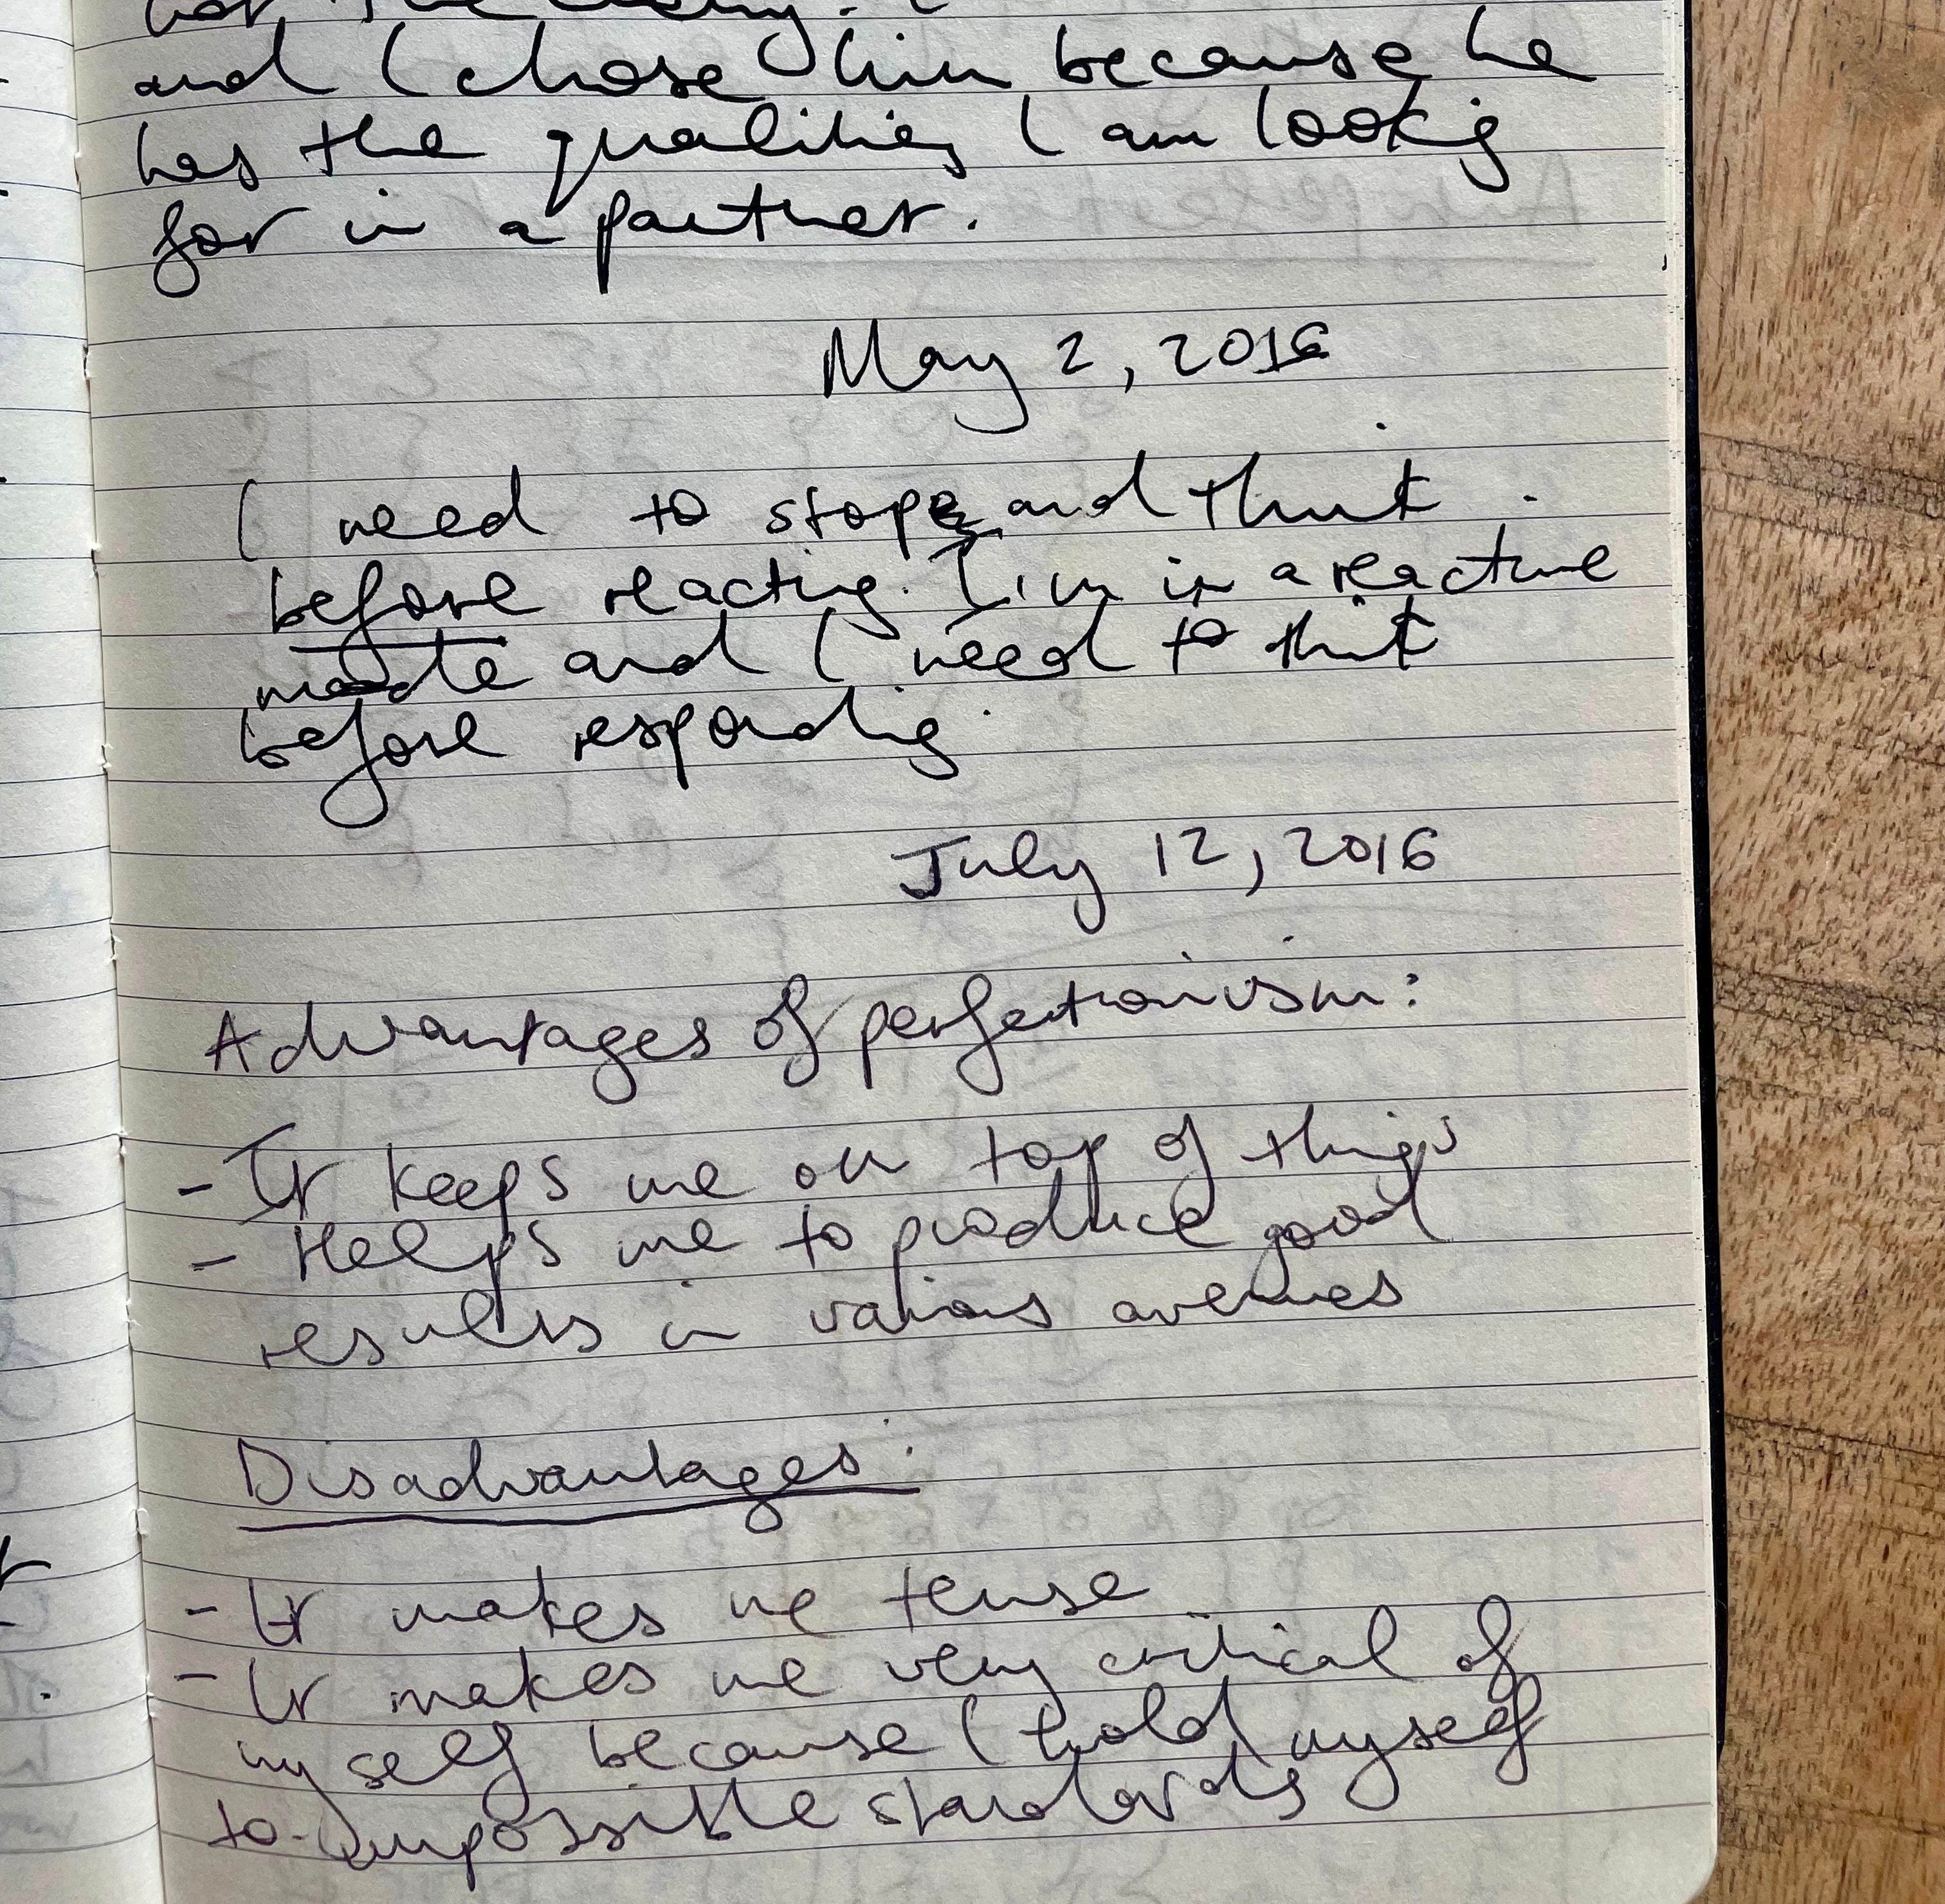 and I chose him because he
has the qualities I am looking
for in a partner.
May 2, 2016
I need to stop and think
before reacting. I'm in a reactive
mode and I need to think
before responding.
July 12, 2016
Advantages of perfectionism:
- It keeps me on top of things
- Helps me to produce good
results in various avenues
Disadvantages:
- It makes me tense
- It makes me very critical of
myself because I hold myself
to impossible standards